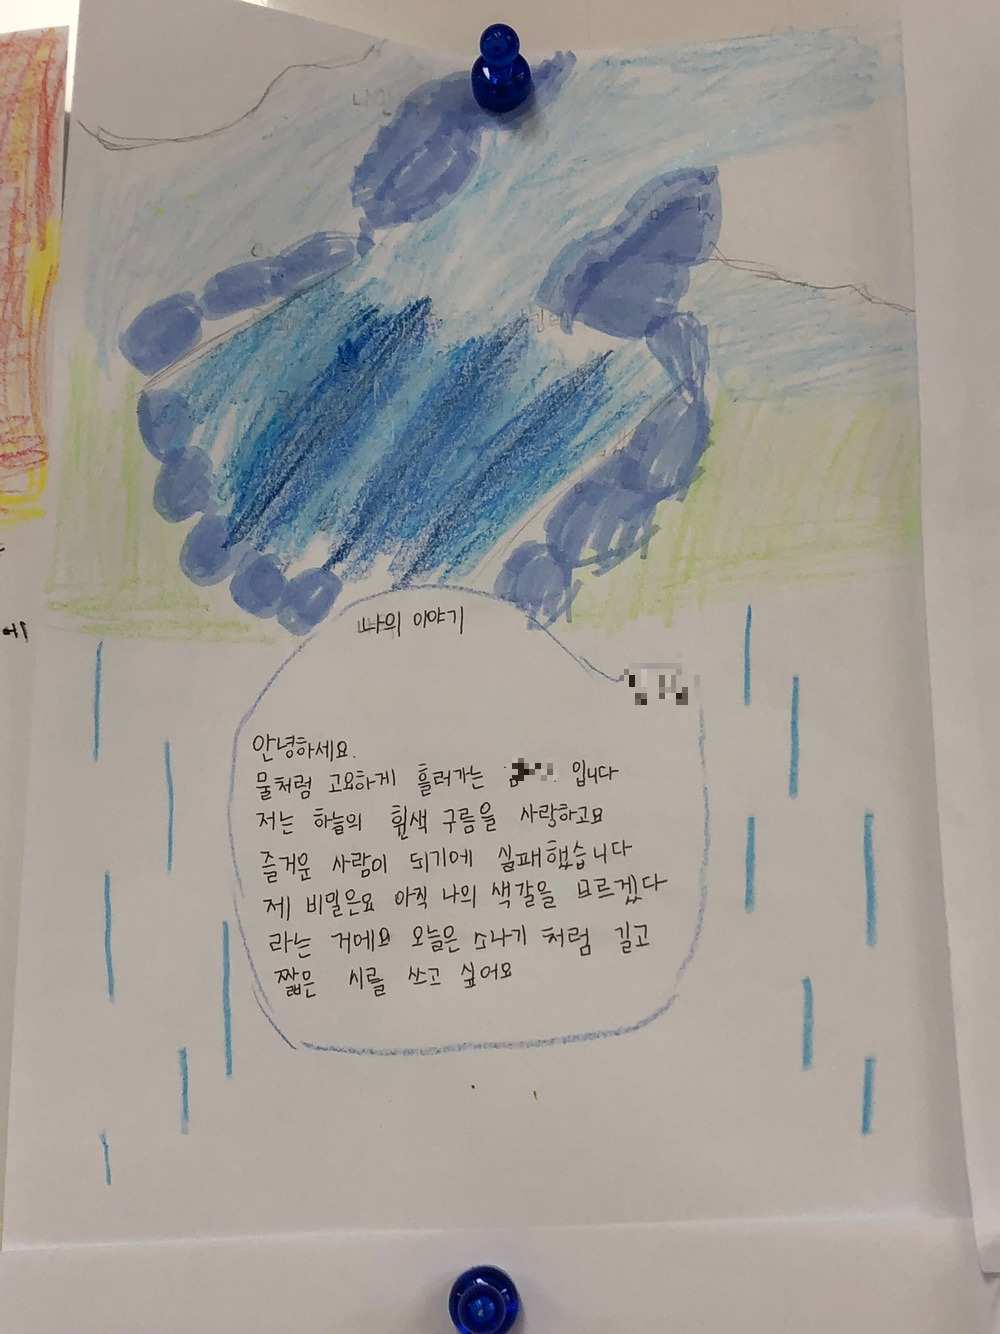 나의 이야기
안녕하세요.
물처럼 고요하게 흘러가는 입니다
저는 하늘의 흰색 구름을 사랑하고요
즐거운 사람이 되기에 실패했습니다
제 비밀은요 아직 나의 색깔을 모르겠다
라는 거에요 오늘은 소나기 처럼 길고
짧은 시를 쓰고 싶어요
에